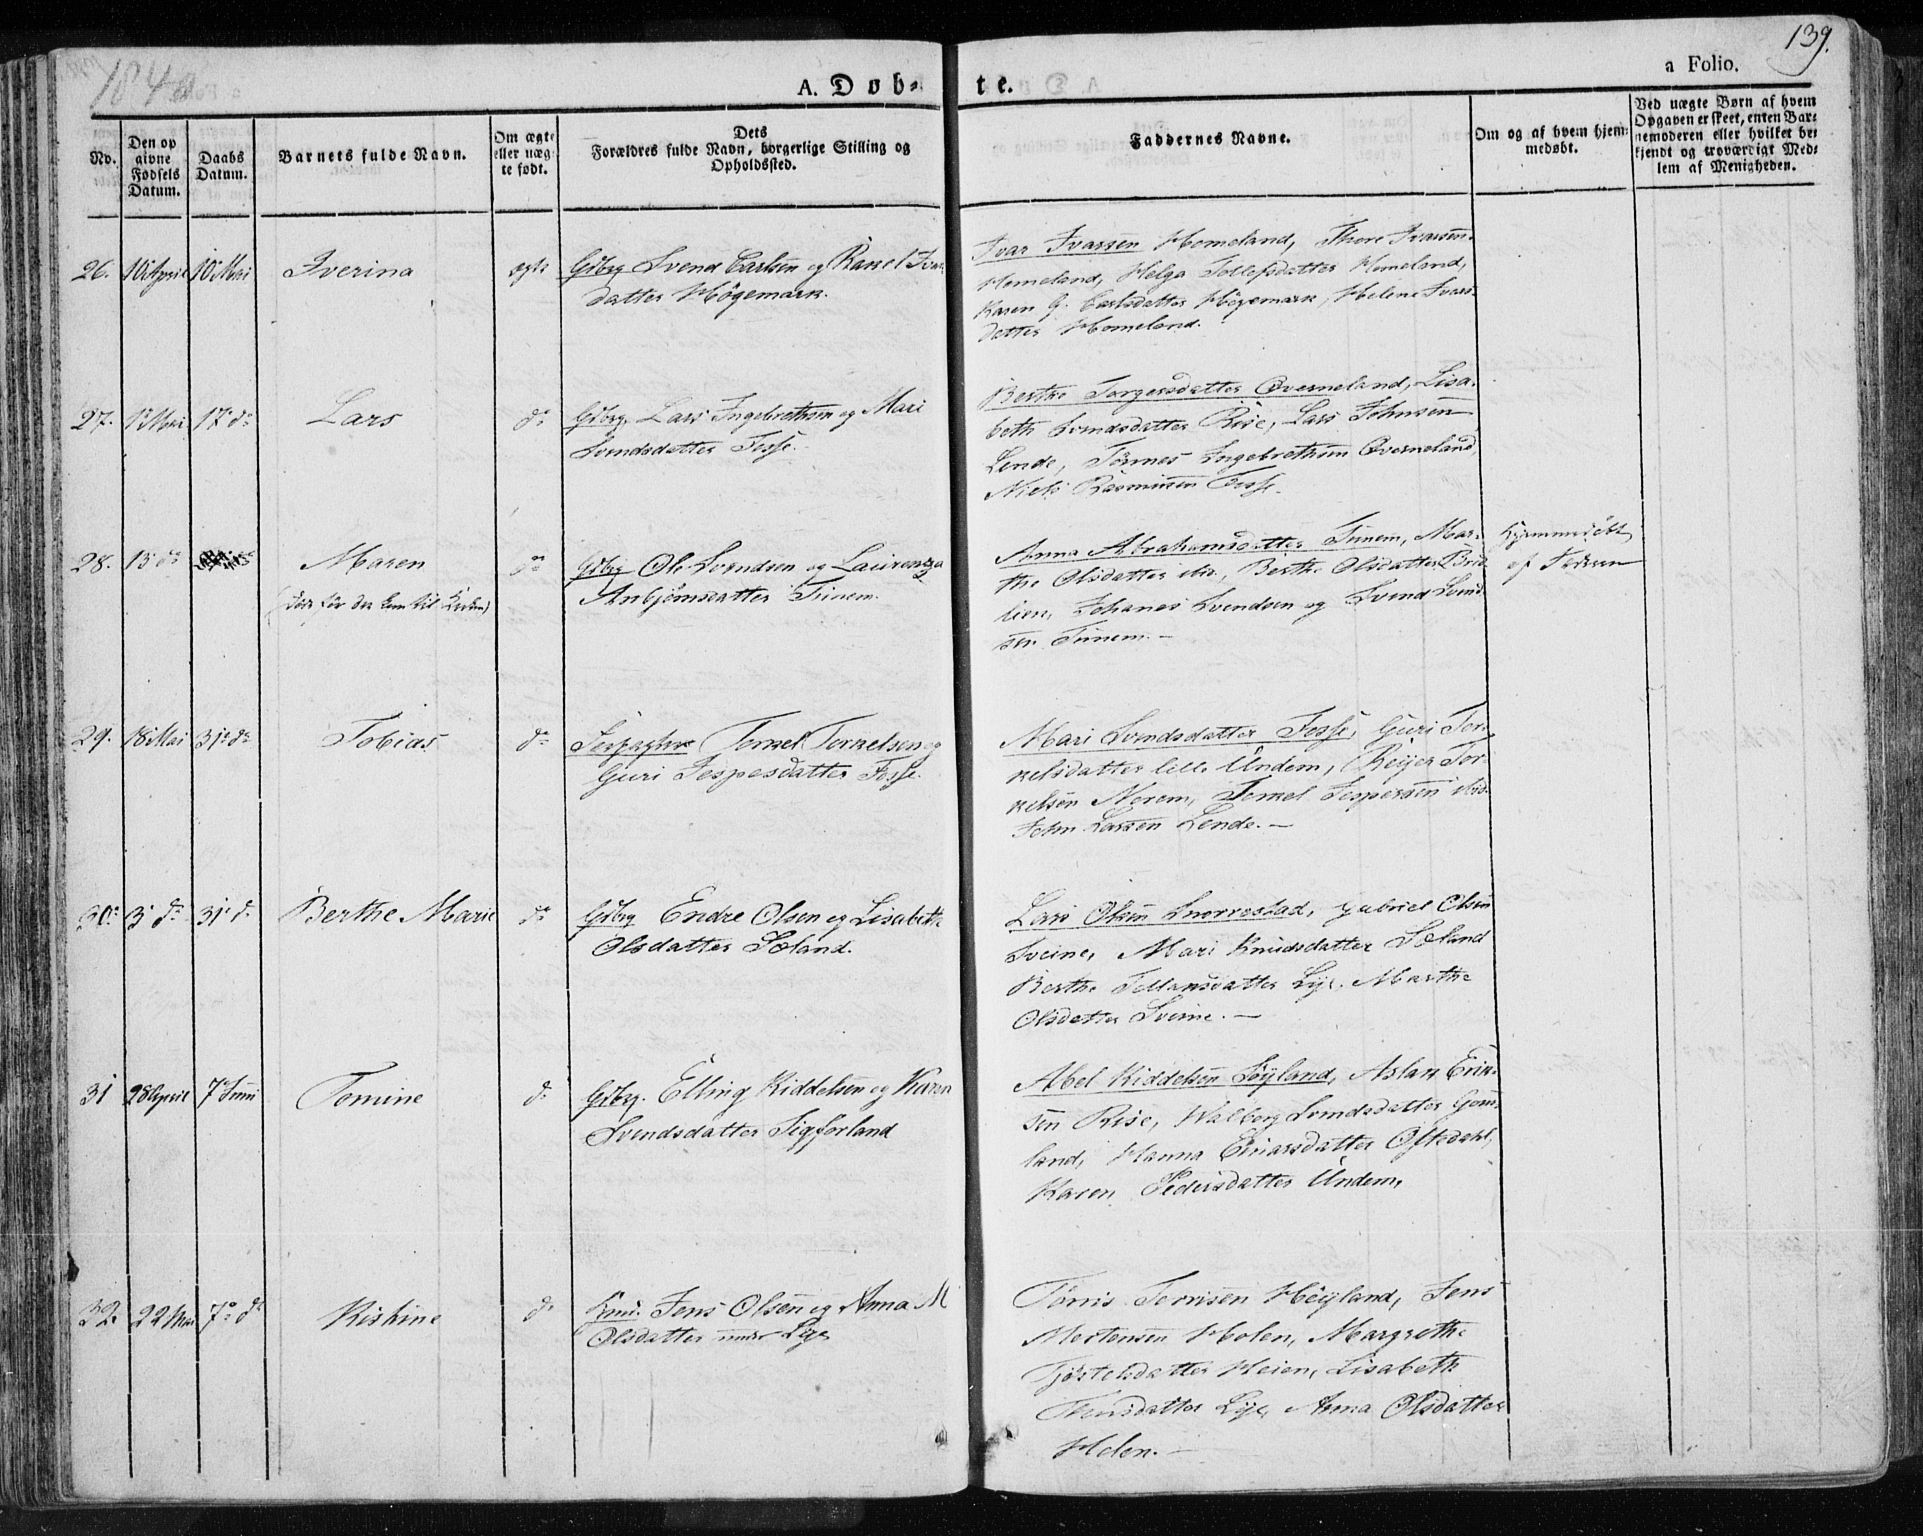 139.
1840
A. Døb-
te.
a Folio.
No.
Den op
givne
Fødsels
Datum.
Daabs
Datum.
Barnets fulde Navn.
Om ægte
eller uæg-
te født.
Dets
Forældres fulde Navn, borgerlige Stilling og
Opholdssted.
Faddernes Navne.
Om og af hvem hjem-
medøbt.
Ved uægte Børn af hvem
Opgaven er skeet, enten Bar-
nemoderen eller hvilket be-
kjendt og troværdigt Med-
lem af Menigheden.
26. 10 April 10 Mai Iverina ægte Gbrg Svend Carlsen og Rakel Ivar
datter Høgemark.
Ivar Ivarsen Homeland, Thore Ivarsen
Homeland, Helga Tollefsdatter Homeland,
Karen G. Carlsdatter Høgemark, Helene Ivars-
datter Homeland.
27. 1 Mai 17 do Lars do Gbrg. Lars Ingebretsen og Mari
Svendsdatter Fosse.
Berthe Torgersdatter Qverneland, Lisa-
beth Svendsdatter Rise, Lars Johnsen
Lende, Tønnes Ingebretsen Qverneland
Niels Rasmussen Fosse.
28. 13 do Maren do Gbrg Ole Svendsen og Laurentza
(døde før det kom til Kirken)
Anbjørnsdatter Tunem.
Anna Abrahamsdatter Tunem, Mar-
the Olsdatter ibid., Berthe Olsdatter Brud-
lien, Johanes Svendsen og Svend Svend
sen Tunem. —
Hjemmedøbt
af Faderen
29. 18 Mai 31 do Tobias do Torkel Torkelsen og
Guri Jespesdatter Fosse.
Mari Svendsdatter Fosse, Guri Tor-
kelsdatter lille Undem, Reijer Tor-
kelsen Norem, Torkel Jespersen ibid.
John Larsen Lende. —
30. 3 do 31 do Berthe Marie do Gbrg Endre Olsen og Lisabeth
Olsdatter Sæland.
Lars Olsen Snorrestad, Gabriel Olsen
Sveine, Mari Knudsdatter Sæland
Berthe Tollaksdatter Lye. Marthe
Olsdatter Sveine. —
31 28 April 7 Juni Tomine do Gbrg. Elling Kiddelsen og Karen
Svendsdatter Sigforland
Abel Kiddelsen Søyland, Aslak Erik-
sen Rise, Walborg Svendsdatter Gom-
land, Hanna Einarsdatter Oftedahl,
Karen Pedersdatter Undem,
32. 22 Mai 7 do Kistine do Jens Olsen og Anna M
Olsdatter Lye
Tørris Torrisen Høyland, Jens
Mortensen Holen, Margrethe
Tjøstelsdatter Heien, Lisabeth
Lye, Anna Olsdatter
Holen. —